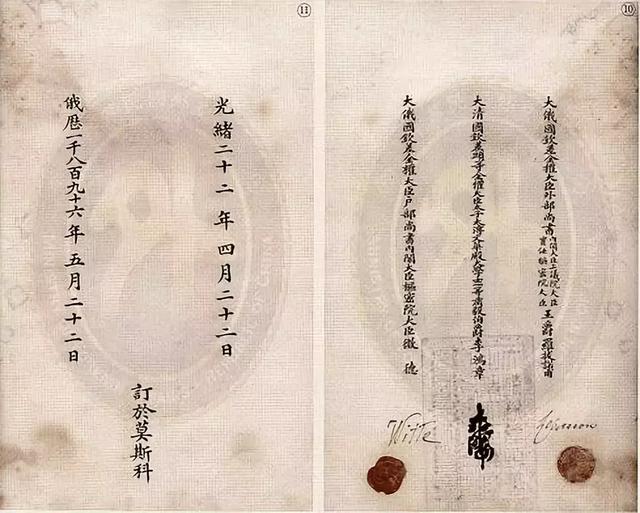 ⑩
大俄國欽差全權大臣外部尚書內閣大臣上議院大臣實任樞密院大臣王爵羅拔諾甫
大清國欽差頭等全權大臣太子太傅文華殿大學士一等肅毅伯爵李鴻章
大俄國欽差全權大臣戶部尚書內閣大臣樞密院大臣微德
Witte
⑪
光緒二十二年四月二十二日
俄歷一千八百九十六年五月二十二日
訂於莫斯科